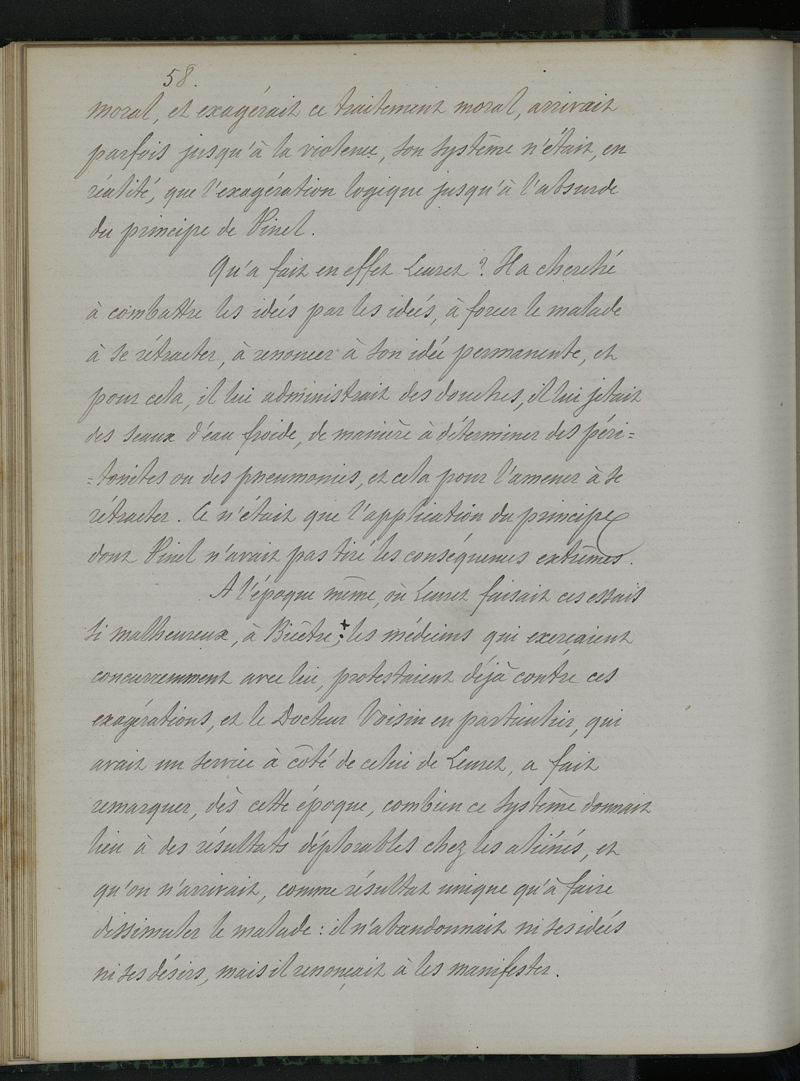 58.
moral, et exagérait ce traitement moral, arrivait
parfois jusqu'à la violence, son système n'était, en
réalité, que l'exagération logique jusqu'à l'absurde
du principe de Pinel.
Qu'a fait en effet Leuret ? Il a cherché
à combattre les idées par les idées, à forcer le malade
à se rétracter, à renoncer à son idée permanente, et
pour cela, il lui administrait des douches, il lui jetait
des seaux d'eau froide, de manière à déterminer des péri=
=tonites ou des pneumonies, et cela pour l'amener à se
rétracter. Ce n'était que l'application du principe
dont Pinel n'avait pas tiré les conséquences extrêmes.
A l'époque même, où Leuret faisait ces essais
si malheureux, à Bicêtre ; les médecins qui exerçaient
concurremment avec lui, protestaient déjà contre ces
exagérations, et le Docteur Voisin en particulier, qui
avait un service à côté de celui de Leuret, a fait
remarquer, dès cette époque, combien ce système donnait
lieu à des résultats déplorables chez les aliénés, et
qu'on n'arrivait, comme résultat unique qu'à faire
dissimuler le malade : il n'abandonnait ni ses idées
ni ses désirs, mais il renonçait à les manifester.